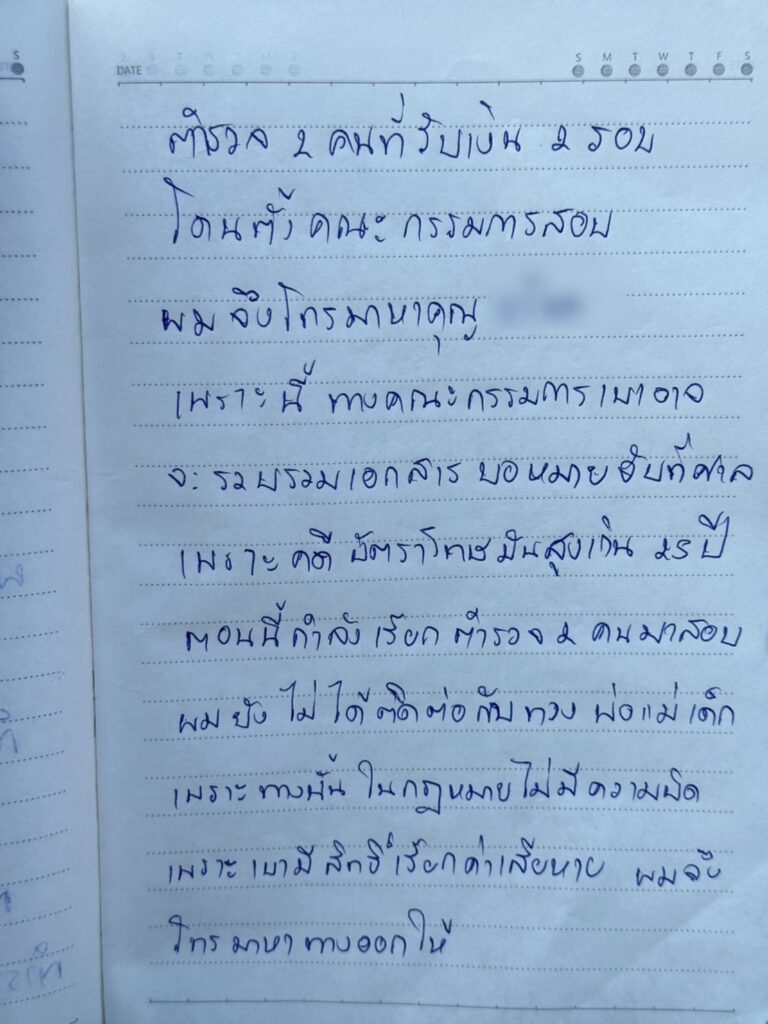 DATE S M T W T F S
ตำรวจ 2 คนที่รับเงิน 2 รอบ
โดนตั้งคณะกรรมการสอบ
ผมจึงโทรมาหาคุณ
เพราะนี้ ทางคณะกรรมการเขาอาจ
จะรวบรวมเอกสาร ขอหมายจับที่ศาล
เพราะคดี อัตราโทษมันสูงเกิน 25 ปี
ตอนนี้กำลังเรียกตำรวจ 2 คนมาสอบ
ผมยังไม่ได้ติดต่อกับทางพ่อแม่เด็ก
เพราะทางนั้นในกฎหมายไม่มีความผิด
เพราะเขามีสิทธิ์เรียกค่าเสียหาย ผมจึง
โทรมาหาทางออกให้